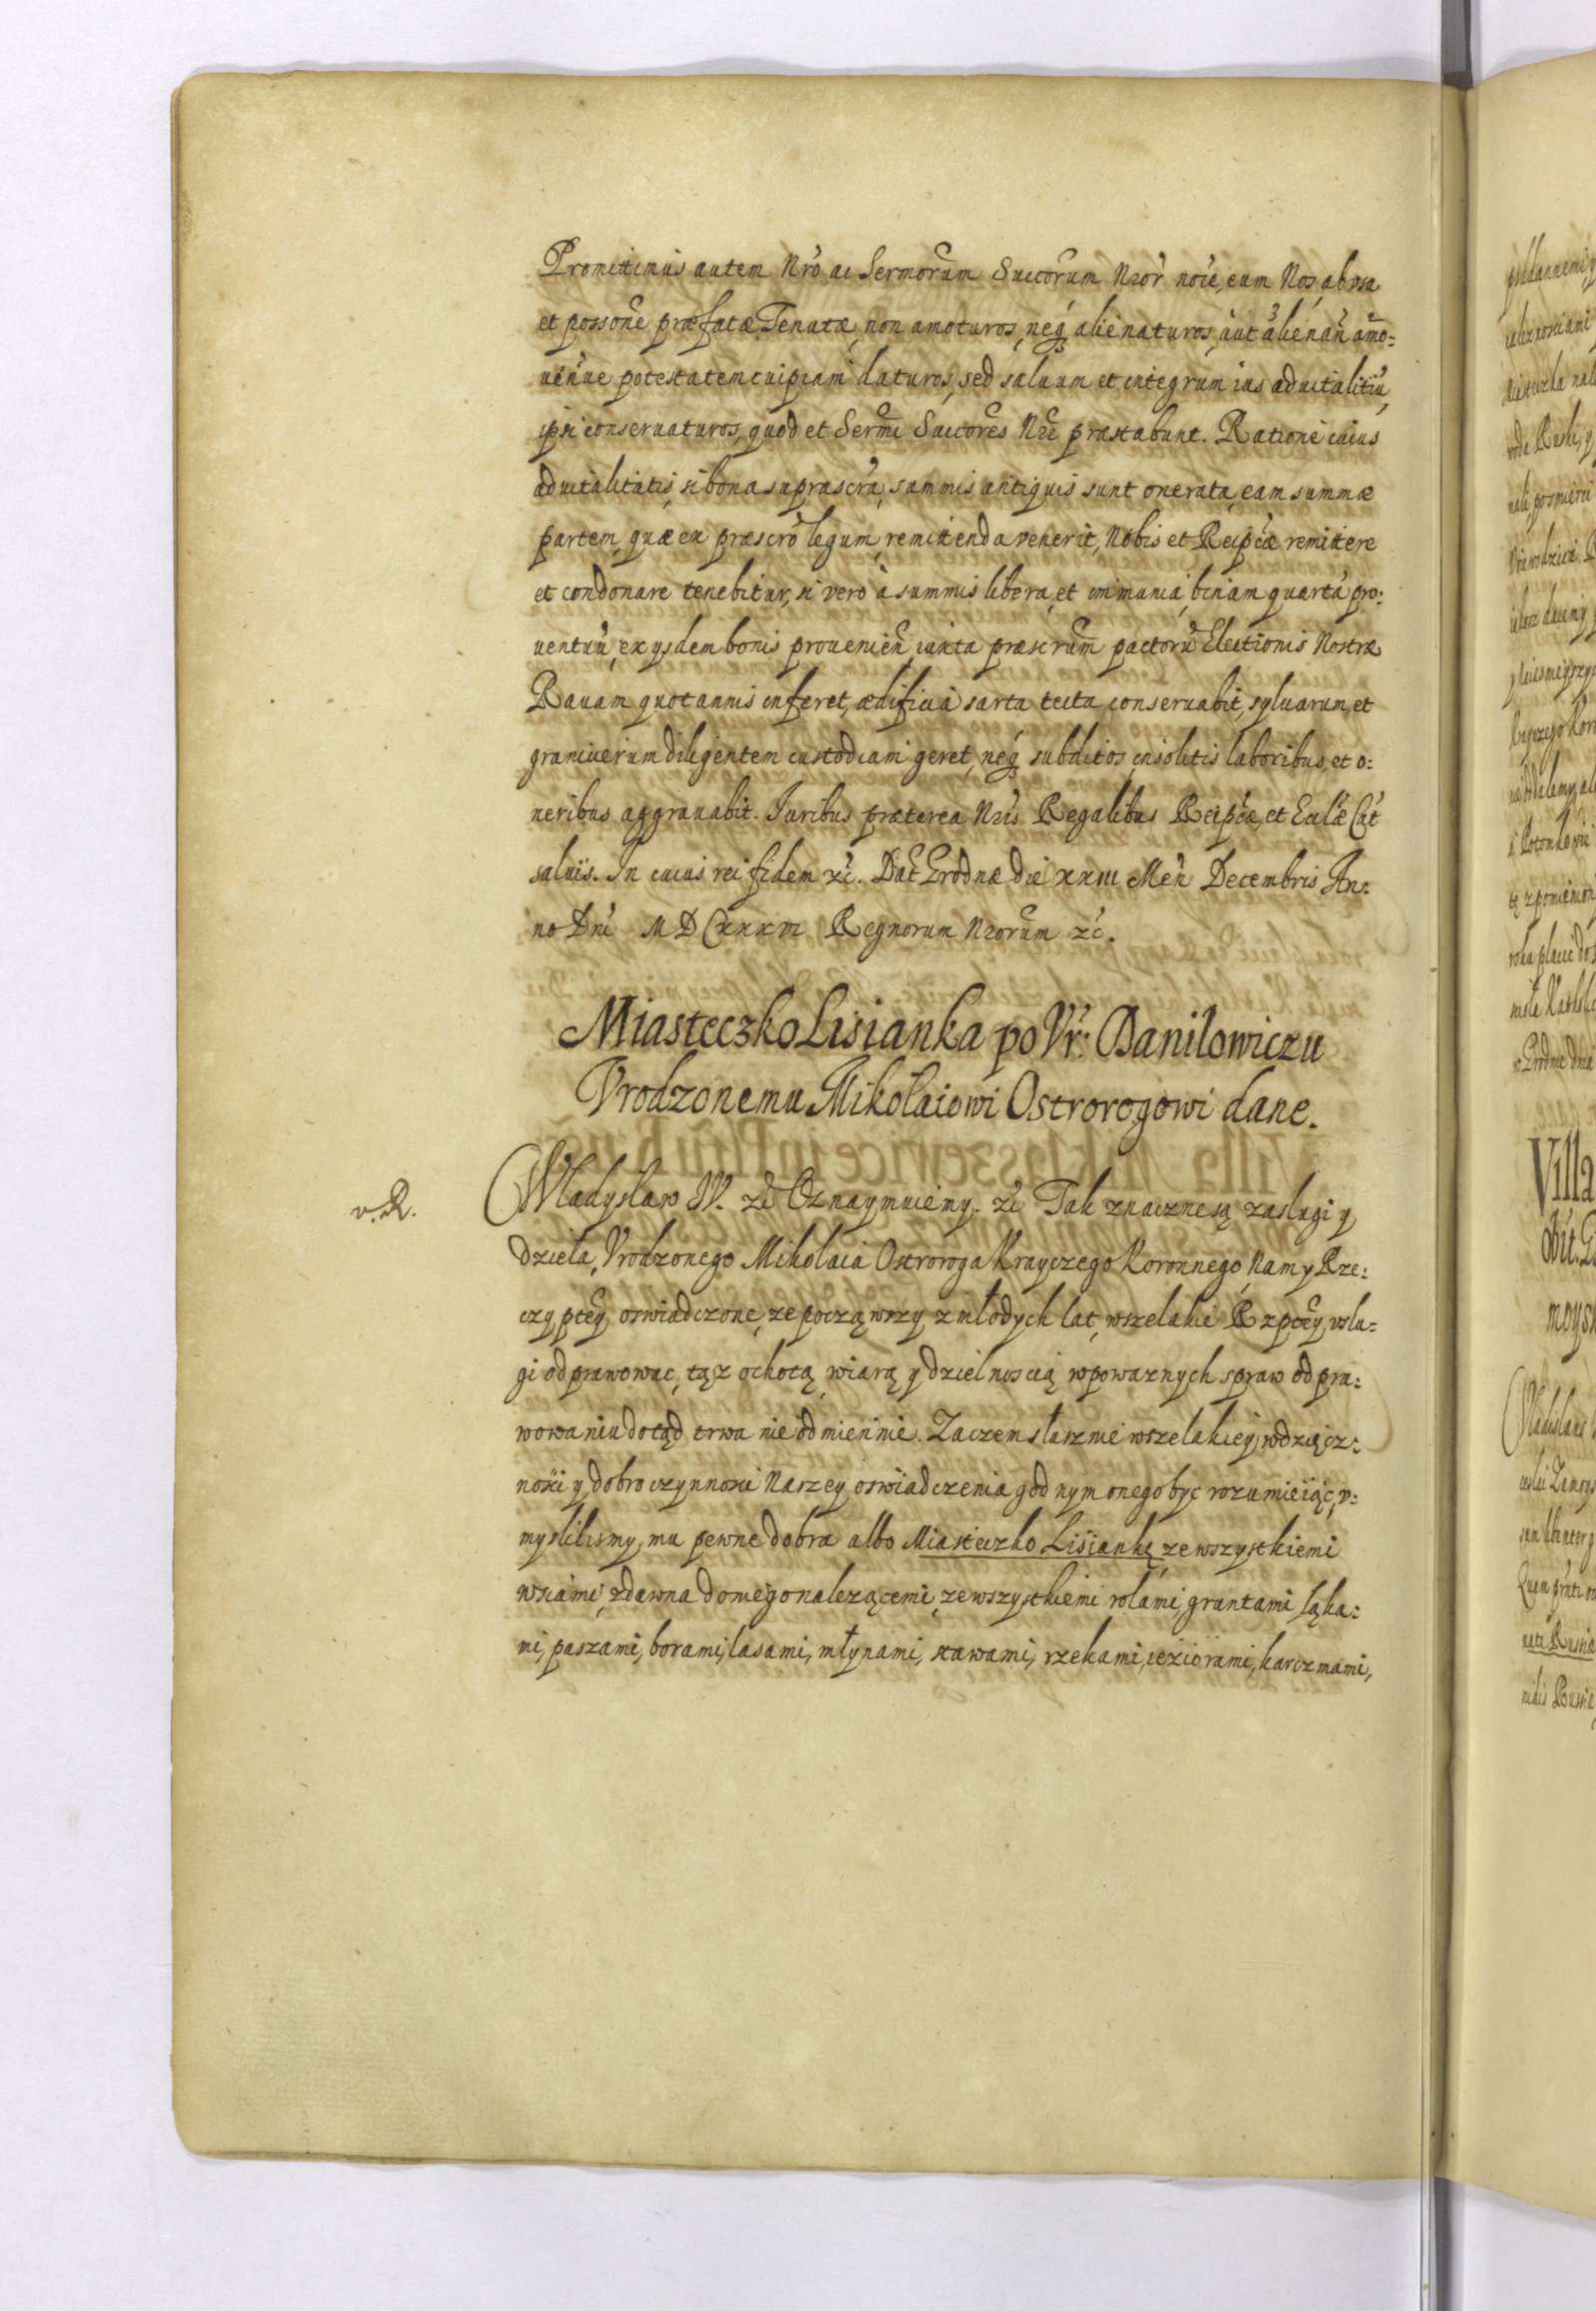 Promittimus autem Nro ac Sermorum Succorum Nror noie, eum Nos ab usu
et possone præfatæ Tenutæ, non amoturos, neq alienaturos, aut alienan amo=
uenue potestatem cuipiam daturos, sed saluum et integrum ius aduitalitiu
ipsi conseruaturos, quod et Sermi Succores Nri præstabunt. Ratione cuius
aduitalitatis, si bona suprascra, summis antiquis sunt onerata, eam summæ
partem, quæ ex præscro legum, remittenda venerit, Nobis et Reipcæ remittere
et condonare tenebitur, si vero à summis libera, et immunia, binam quarta pro:
uentuu, ex ysdem bonis prouenien, iuxta præscrum pactoru Electionis Nostræ
Rauam quotannis inferet, ædificia sarta tecta conseruabit, syluarum, et
graniciierum diligentem custodiam geret, neq subditos insolitis laboribus, et o:
neribus aggrauabit. Iuribus præterea Nris Regalibus Reipcæ, et Eccliæ Cat
saluis. In cuius rei fidem &c. Dat Grodnæ die xxiii Men Decembris An:
no Dni MDCxxxvi Regnorum Nrorum &c.
Miasteczko Lisianka po Vr: Danilowiczu
Vrodzonemu Mikolaiowi Ostrorogowi dane.
v. R.
Wladyslaw IV. &c Oznaymuiemy. &c Tak znaczne są zaslugi y
dziela, Vrodzonego Mikolaia Ostroroga Krayczego Koronnego, Nam y Rze:
czyptey oswiadczone, ze począwszy z młodych lat, wszelakie Rzptey, vslu=
gi odprawowac, tąz ochotą, wiarą y dzielnoscią w powaznych spraw odpra:
wowaniu dotąd trwa nieodmiennie. Zaczem słusznie wszelakiey, wdzięcz:
nosci y dobroczynnosci Naszey oswiadczenia godnym onego byc rozumieiąc, v:
myslilismy mu pewne dobra albo Miasteczko Lisiankę ze wszystkiemi
wsiami, zdawna do niego nalezącemi, ze wszystkiemi rolami, gruntami łąka:
mi, paszami, borami, lasami, młynami, stawami, rzekami, ieziorami, karczmami,